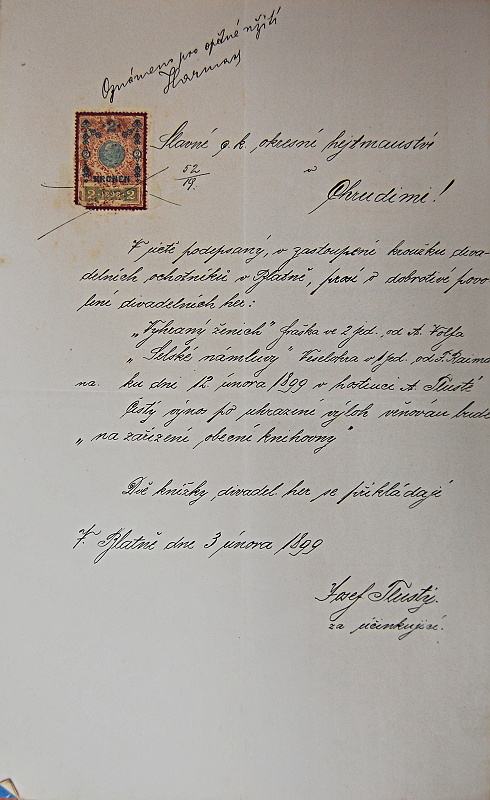 Oznámeno pro opětné užití
Slavné c. k. okresní hejtmanství
52
19.
v
Chrudimi!
V úctě podepsaný, v zastoupení kroužku diva-
delních ochotníků v Blatně, prosí o dobrotivé povo-
lení divadelních her:
„Vybraný ženich" fraška ve 2 jed. od A. Volfa
„Selské námluvy" Veselohra v 1 jed. od F. Raimo
na. ku dni 12 února 1899 v hostinci A. Tlusté
Čistý výnos po uhrazení výloh věnován bude
„na zařízení obecní knihovny"
Dvě knížky divadel. her se přikládají
V Blatně dne 3 února 1899
Josef Tlustý.
za účinkující.
2
KRONEN
2 1898 2